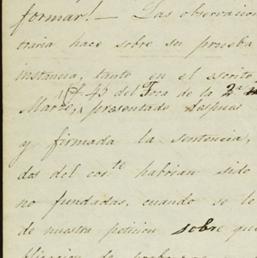 formar! — Las observacion
traria hace sobre su prueba
instancia, tanto en el escrito
f. 45 del Ɛrca de la 2ª
Marzo, presentado despues
y firmada la sentencia,
dos del corte habrian sido
no fundadas, cuando se le
de nuestra peticion sobre que